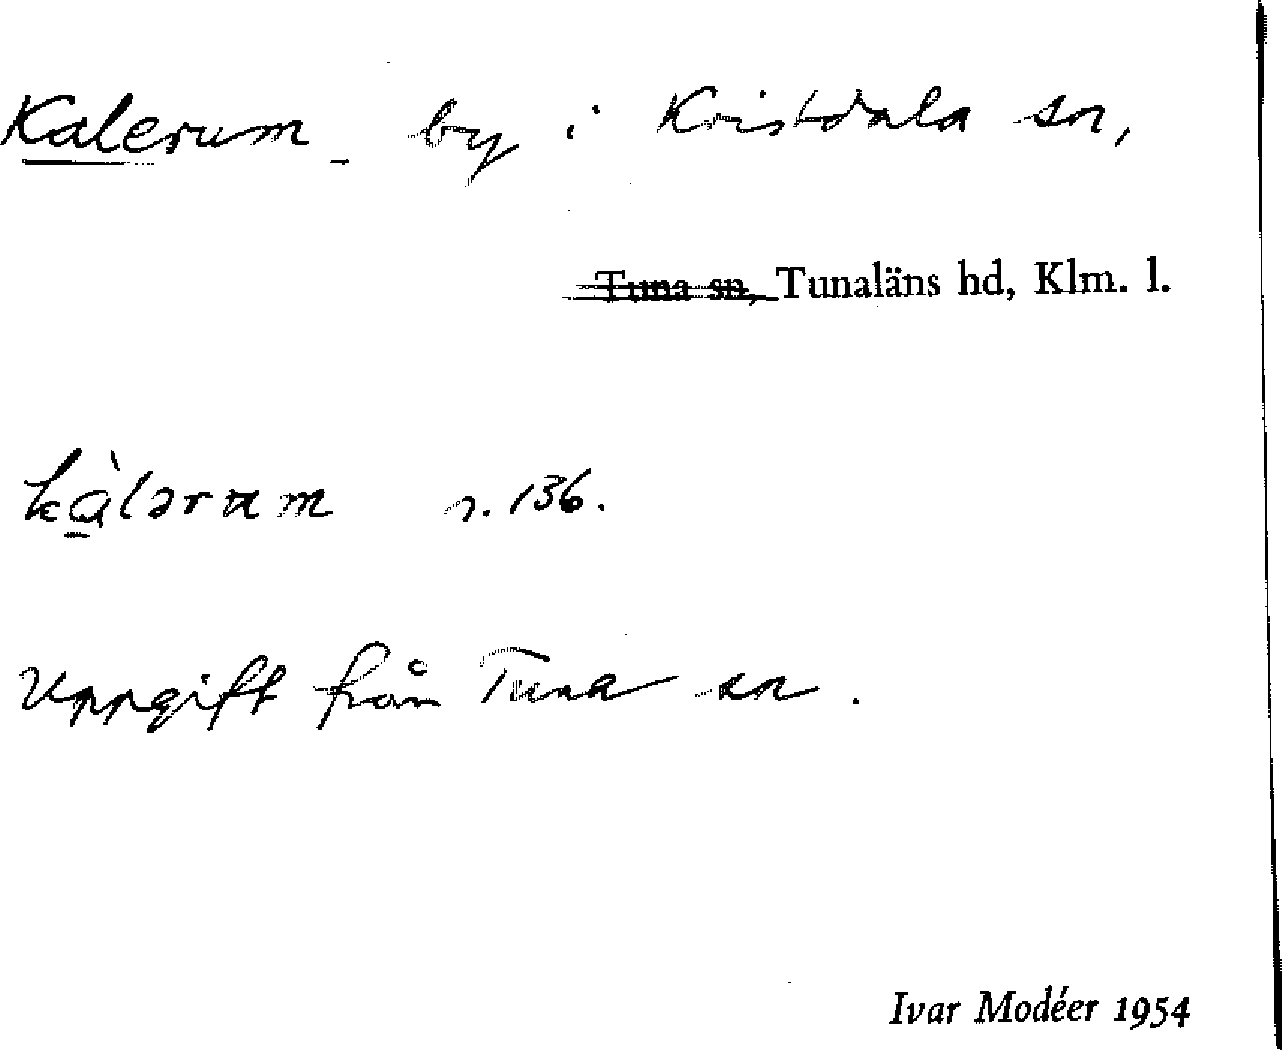 Kalerum by i Kristdala sn,
Tuna sn, Tunaläns hd, Klm. l.
kàləram s. 136.
Uppgift från Tuna sn.
Ivar Modéer 1954